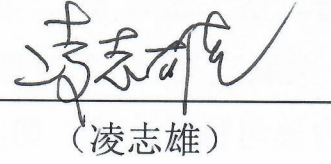 凌志雄
（凌志雄）